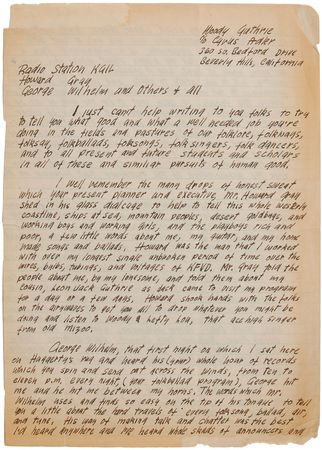 Woody Guthrie
℅ Cyrus Adler
360 so. Bedford Drive
Beverly Hills, California
Radio Station KGIL
Howard Gray
George Wilhelm and Others & all
I just can't help writing to you folks to try
to tell you what good and what a well needed job you're
doing in the fields and pastures of our folklore, folkways,
folksay, folkballads, folksongs, folk singers, folk dancers,
and to all present and future students and scholars
in all of these and similar pursuits of human good.
I well remember the many drops of honest sweat
which your present planner and executive, Mr. Howard Gray
shed in his glass dialcage to help to tell this whole worldly
coastline, ships at sea, mountain peoples, desert goldbugs, and
working boys and working girls, and the playboys rich and
poor, a few little words about me, my guitar, and my home
made songs and ballads. Howard was the man that I worked
with over my longest single unbroken period of time over the
wires, bulbs, tubes, and voltages of KFVD. Mr. Gray told the
people about me, by my lonesome, and told them about my
cousin, Leon Jack Guthrie as Jack came to visit my program
for a day or a few days. Howard shook hands with the folks
on the airwaves to get you all to drop whatever you might be
doing and listen to Woody & Lefty Lou, that ace high singer
from old Mizoo.
George Wilhelm, that first night on which I sat here
on Haggerty's rug and heard his (your) whole home of records
which you spin and send out across the winds, from ten to
eleven p.m. every night (your folkballad program), George hit
me and he hit me between my horns. The words which Mr.
Wilhelm uses and finds so easy on the tip of his tongue to tell
you a little about the hard travels of every folksong, ballad, air,
and tune, His way of making talk and chatter was the best
I'd heard anywhere and I've heard whole skads of announcers and